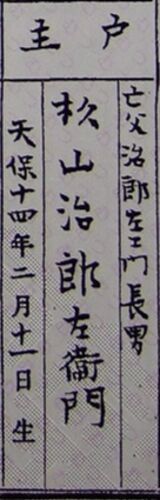 戸主
亡父治郎左エ門長男
杉山治郎左衛門
天保十四年二月十一日生